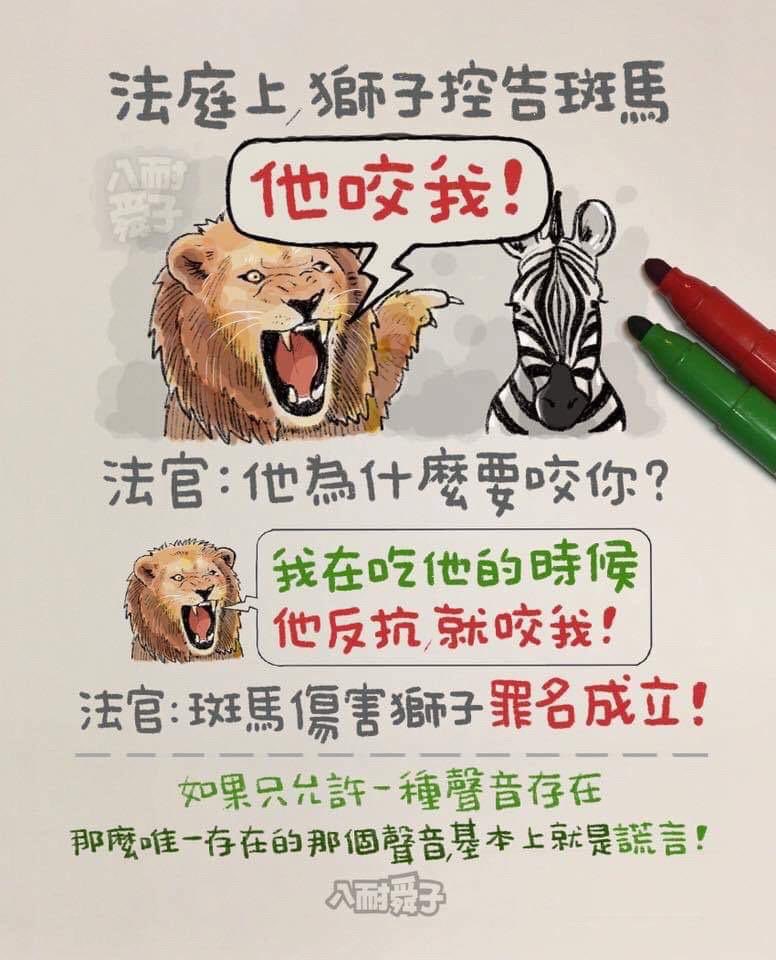 法庭上,獅子控告斑馬
八耐
舜子
他咬我!
法官:他為什麼要咬你?
我在吃他的時候
他反抗,就咬我!
法官:斑馬傷害獅子罪名成立!
如果只允許一種聲音存在
那麼唯一存在的那個聲音,基本上就是謊言!
八耐舜子